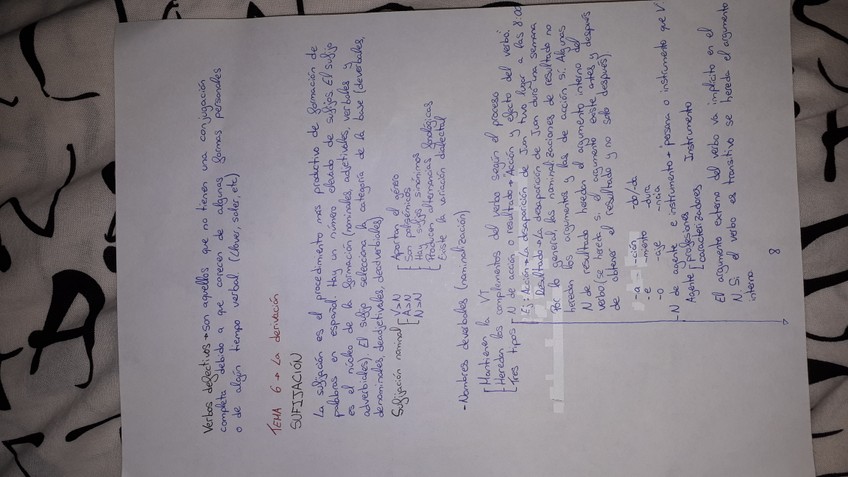 Verbos defectivos → son aquellos que no tienen una conjugación
completa debido a que carecen de algunas formas personales
o de algún tiempo verbal (llover, soler, etc)
TEMA 6 → La derivación
SUFIJACIÓN
La sufijación es el procedimiento más productivo de formación de
palabras en español. Hay un número elevado de sufijos. El sufijo
es el núcleo de la formación (nominales, adjetivales, verbales y
adverbiales). El sufijo selecciona la categoría de la base (deverbales,
denominales, deadjetivales, deadverbiales)
Sufijación nominal
V>N
A>N
N>N
Aportan el género
Son polisémicos
Hay sufijos sinónimos
Producen alternancias fonológicas
Existe la variación dialectal
- Nombres deverbales (nominalización)
Mantienen la VT
Heredan los complementos del verbo según el proceso
Tres tipos
N de acción o resultado → Acción y efecto del verbo.
Ej: Acción → La desaparición de Juan tuvo lugar a las 8.00
Resultado → La desaparición de Juan duró una semana
Por lo general, las nominalizaciones de resultado no
heredan los argumentos y las de acción sí. Algunas
N de resultado heredan el argumento interno del
verbo (se hereda si el argumento existe antes y después
de obtener el resultado y no solo después).
-a -ción -do/-da
-e -miento -dura
-o -aje -ncia
- N de agente e instrumento → persona o instrumento que V.
Agente
profesiones
caracterizadores
Instrumento
El argumento externo del verbo va implícito en el
N. Si el verbo es transitivo se hereda el argumento
interno
8